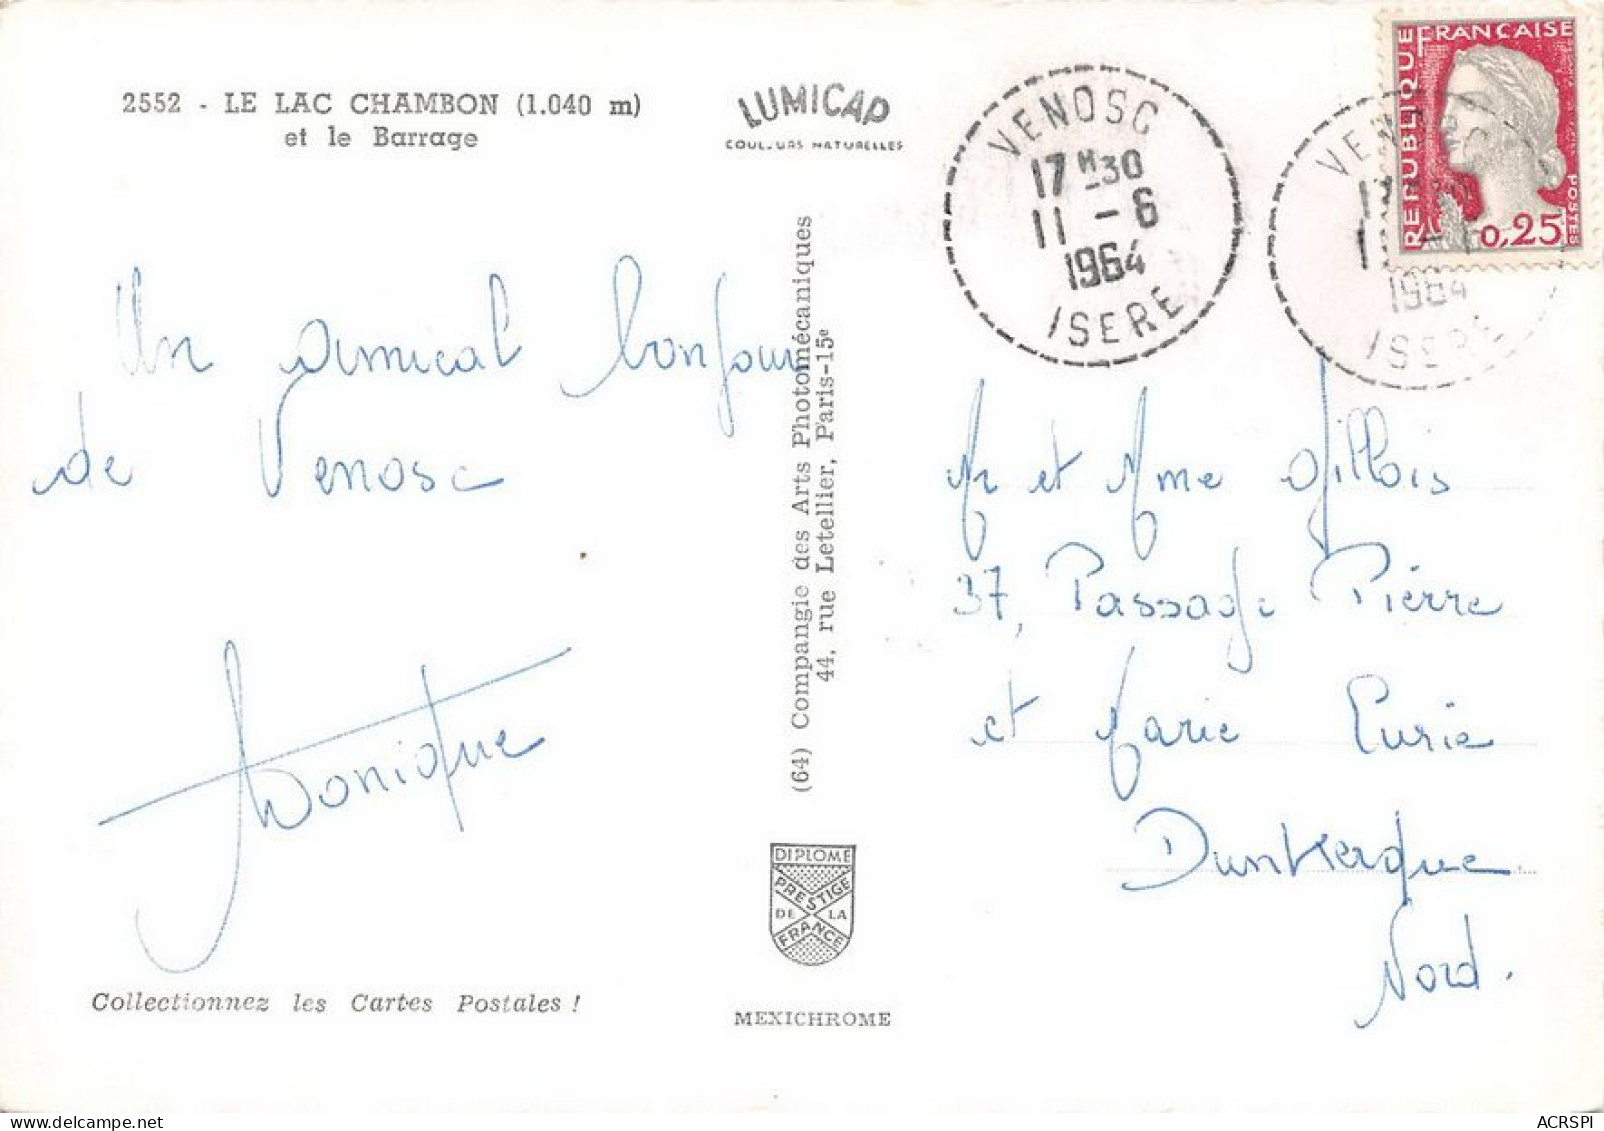 2552 - LE LAC CHAMBON (1.040 m)
et le Barrage
LUMICAP
COULEURS NATURELLES
VENOSC
17H30
11-6
1964
ISERE
VENOSC
1964
ISERE
REPUBLIQUE FRANÇAISE
POSTES
0,25
Un amical bonjour
de Venosc
Monique
(64) Compangie des Arts Photomécaniques
44, rue Letellier, Paris-15e
Mr et Mme Gillois
37, Passage Pierre
et Marie Curie
Dunkerque
Nord.
DIPLOME
PRESTIGE
DE LA
FRANCE
Collectionnez les Cartes Postales !
MEXICHROME
ACRSPI